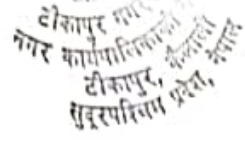 टीकापुर नगर
नगर कार्यपालिकाको
टीकापुर, कैलाली
सुदूरपश्चिम प्रदेश, नेपाल